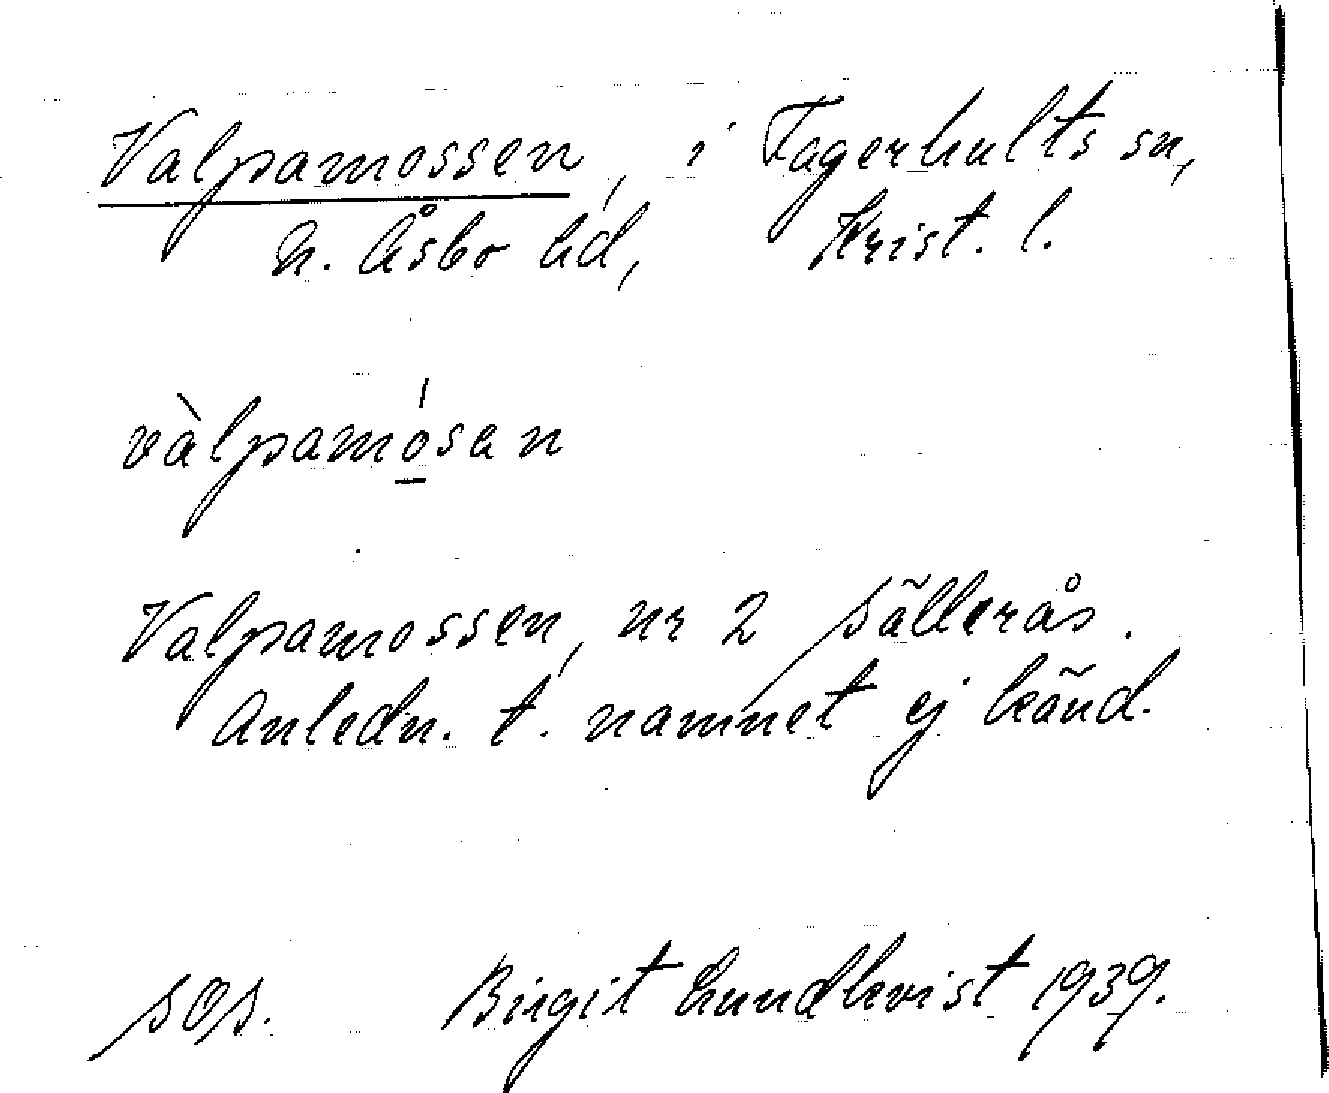 Valpamossen, i Fagerhults sn,
N. Åsbo hd, Krist. l.
vàlpamósen
Valpamossen, nr 2 Sällerås.
Anledn. t. namnet ej känd.
SOS. Birgit Lundkvist 1939.